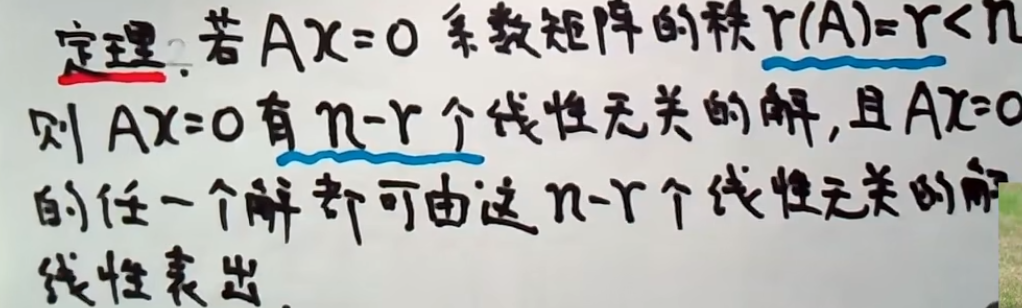 定理：若 Ax=0 系数矩阵的秩 r(A)=r<n
则 Ax=0 有 n-r 个线性无关的解，且 Ax=0
的任一个解都可由这 n-r 个线性无关的解
线性表出.